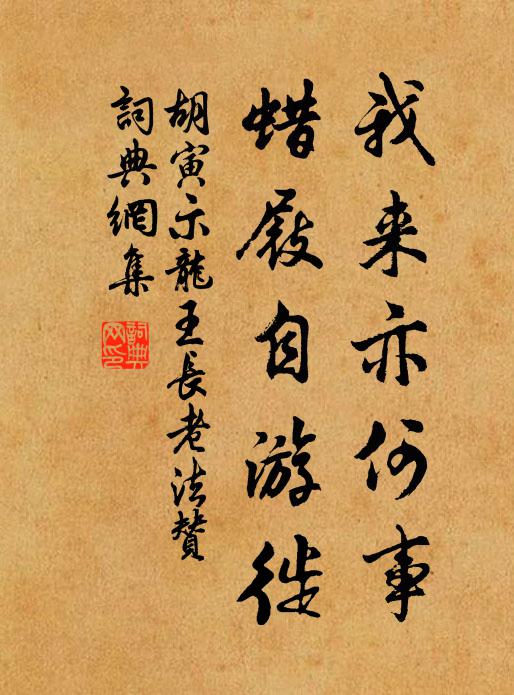 我来亦何事
蜡屐自游徙
胡寅示龍王長老法贊
詞典網集
詞典網印